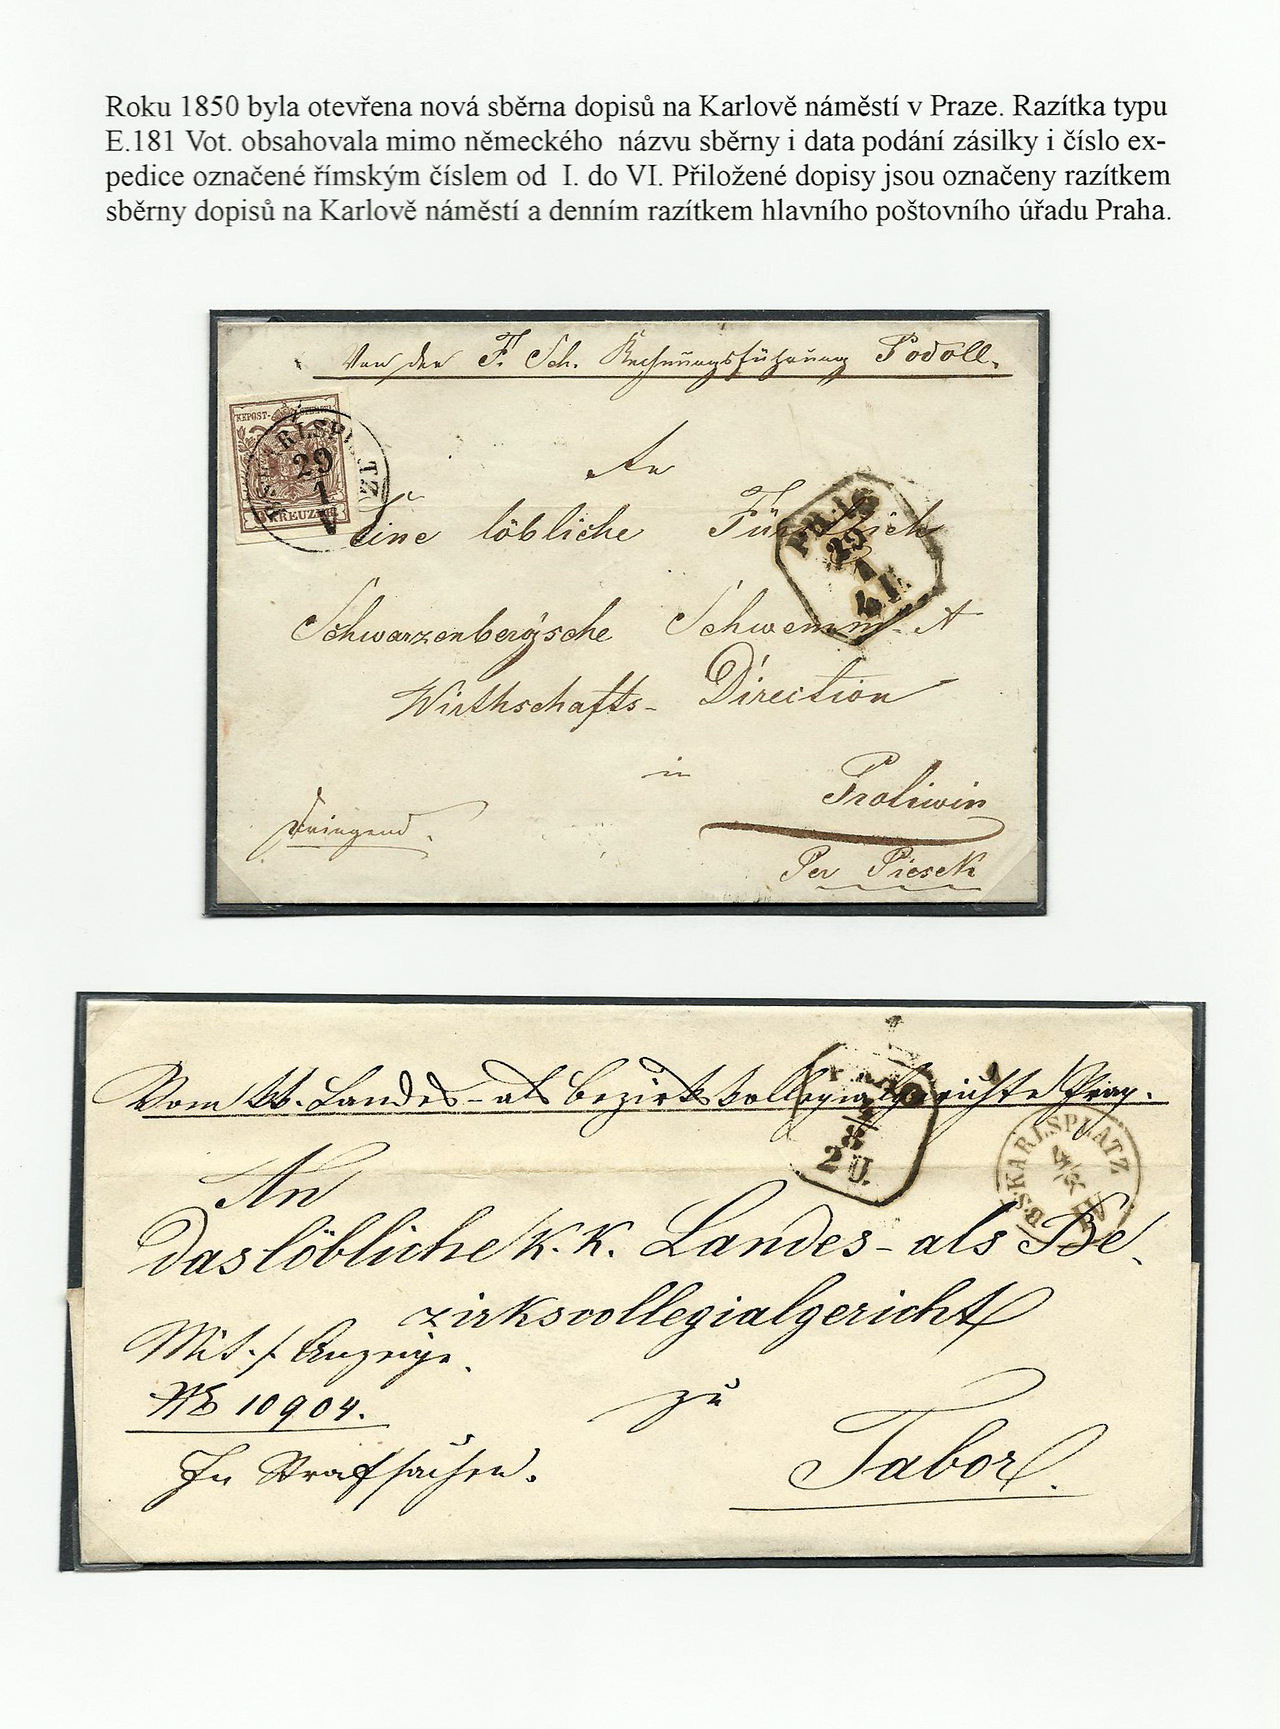 Roku 1850 byla otevřena nová sběrna dopisů na Karlově náměstí v Praze. Razítka typu
E.181 Vot. obsahovala mimo německého názvu sběrny i data podání zásilky i číslo ex-
pedice označené římským číslem od I. do VI. Přiložené dopisy jsou označeny razítkem
sběrny dopisů na Karlově náměstí a denním razítkem hlavního poštovního úřadu Praha.
Von der F. Sch. Rechnungsführung Podoll.
KKPOST-STEMPEL
KREUZER
KARLSPLATZ
29
1
V
An
PRAG
29
1
Eine löbliche Fürstlich
Schwarzenberg'sche Schwemm- &
Wirthschafts- Direction
in
Protiwin
dringend.
Per Piesek
Vom kk. Landes- als Bezirkskollegialgerichte Prag.
PRAG
8
2 U.
B.S. KARLSPLATZ
4/8
IV
An
das löbliche k. k. Landes- als Be-
zirkscollegialgericht
Mit ./. Anzeige.
10904.
zu
In Strafsachen.
Tabor.